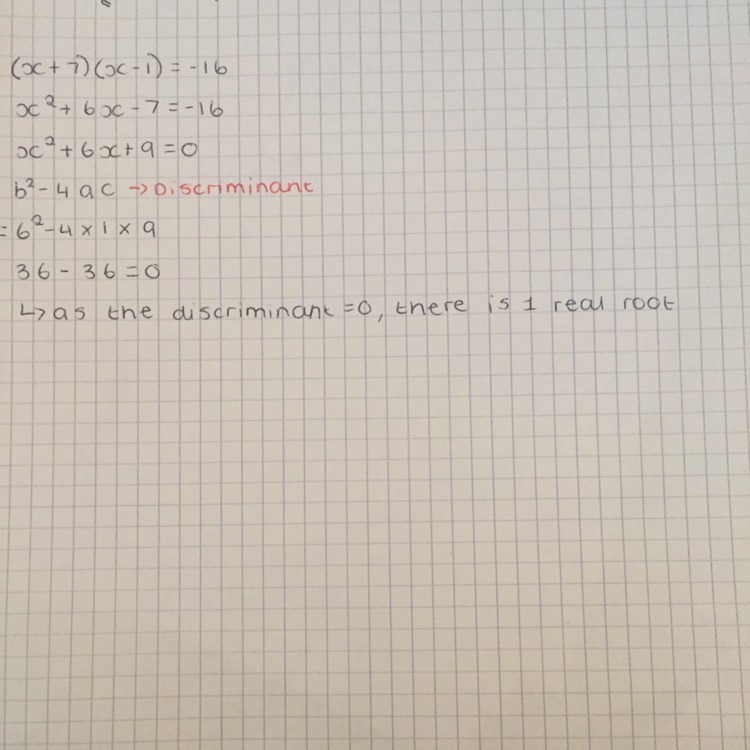 (x+7)(x-1) = -16
x²+6x-7=-16
x²+6x+9=0
b²-4ac → Discriminant
=6²-4×1×9
36-36=0
↳ as the discriminant =0, there is 1 real root